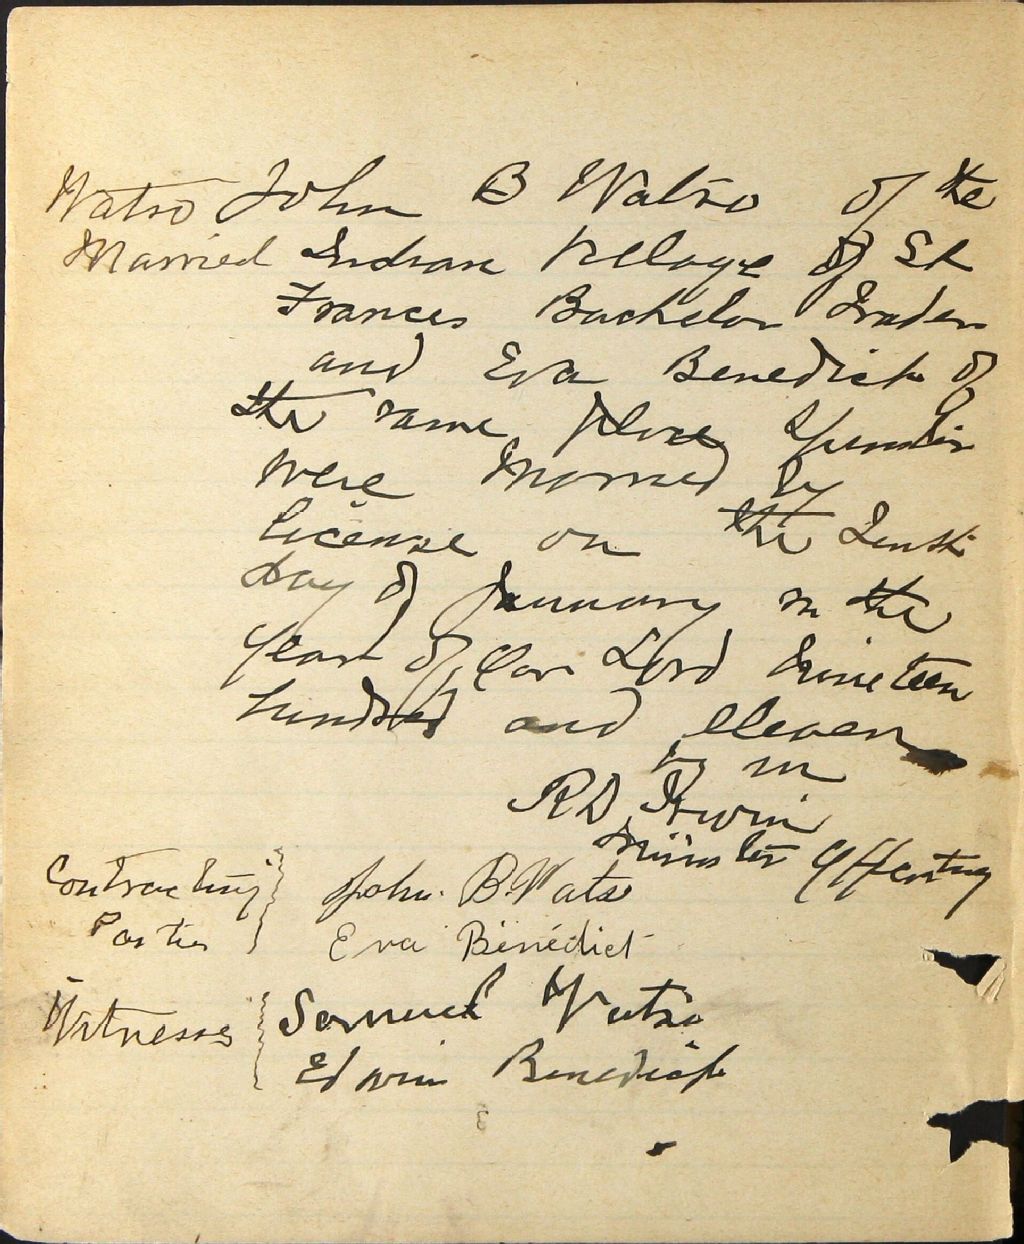 Watso John B Watso of the
Married Indian Village of St
Frances Bachelor Trader
and Eva Benedict of
the same place Spinster
were Married by
license on the Tenth
day of January in the
year of Our Lord Nineteen
hundred and eleven
by me
R D Irwin
Minister Officiating
Contracting John. B. Watso
Parties Eva Bénédict
Witnesses Samuel Watso
Edwin Benedict